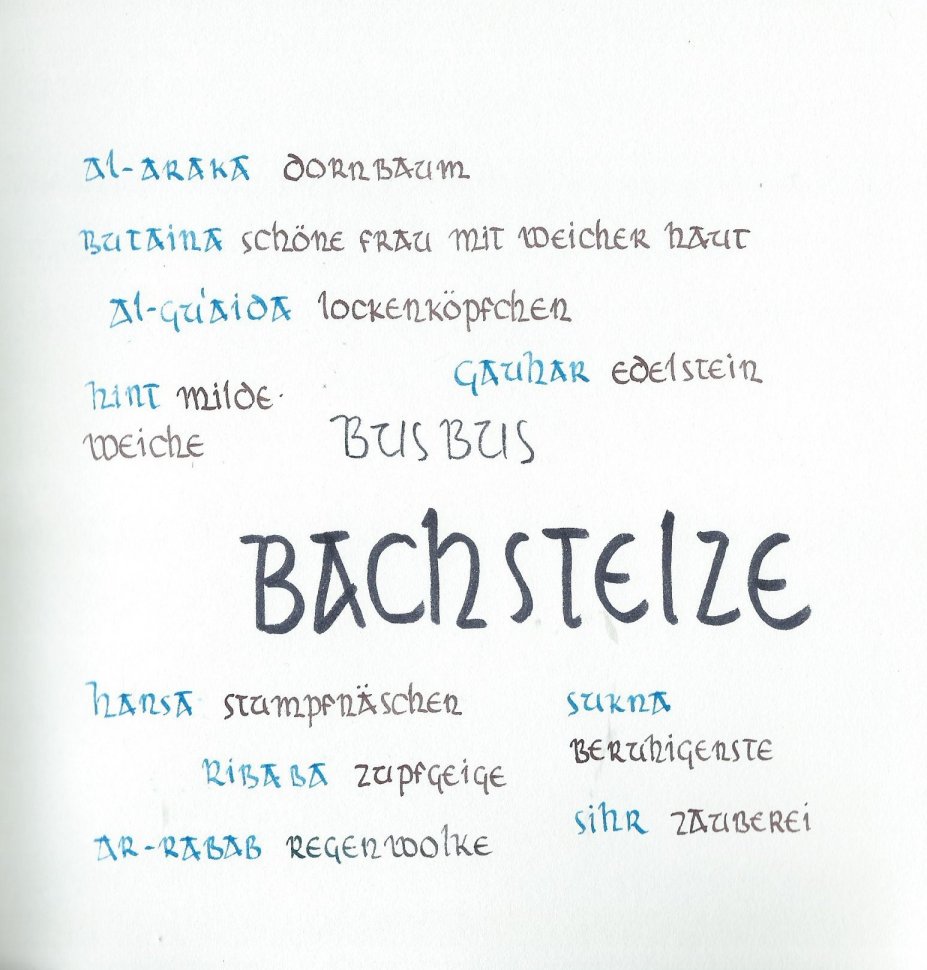 Al-Araka Dornbaum
Butaina schöne Frau mit weicher Haut
Al-Gu'aida Lockenköpfchen
Gauhar Edelstein
Hint Milde.
Weiche
Busbus
Bachstelze
Hansa Stumpfnäschen
Sukna
Beruhigenste
Ribaba Zupfgeige
Sihr Zauberei
Ar-Rabab Regenwolke